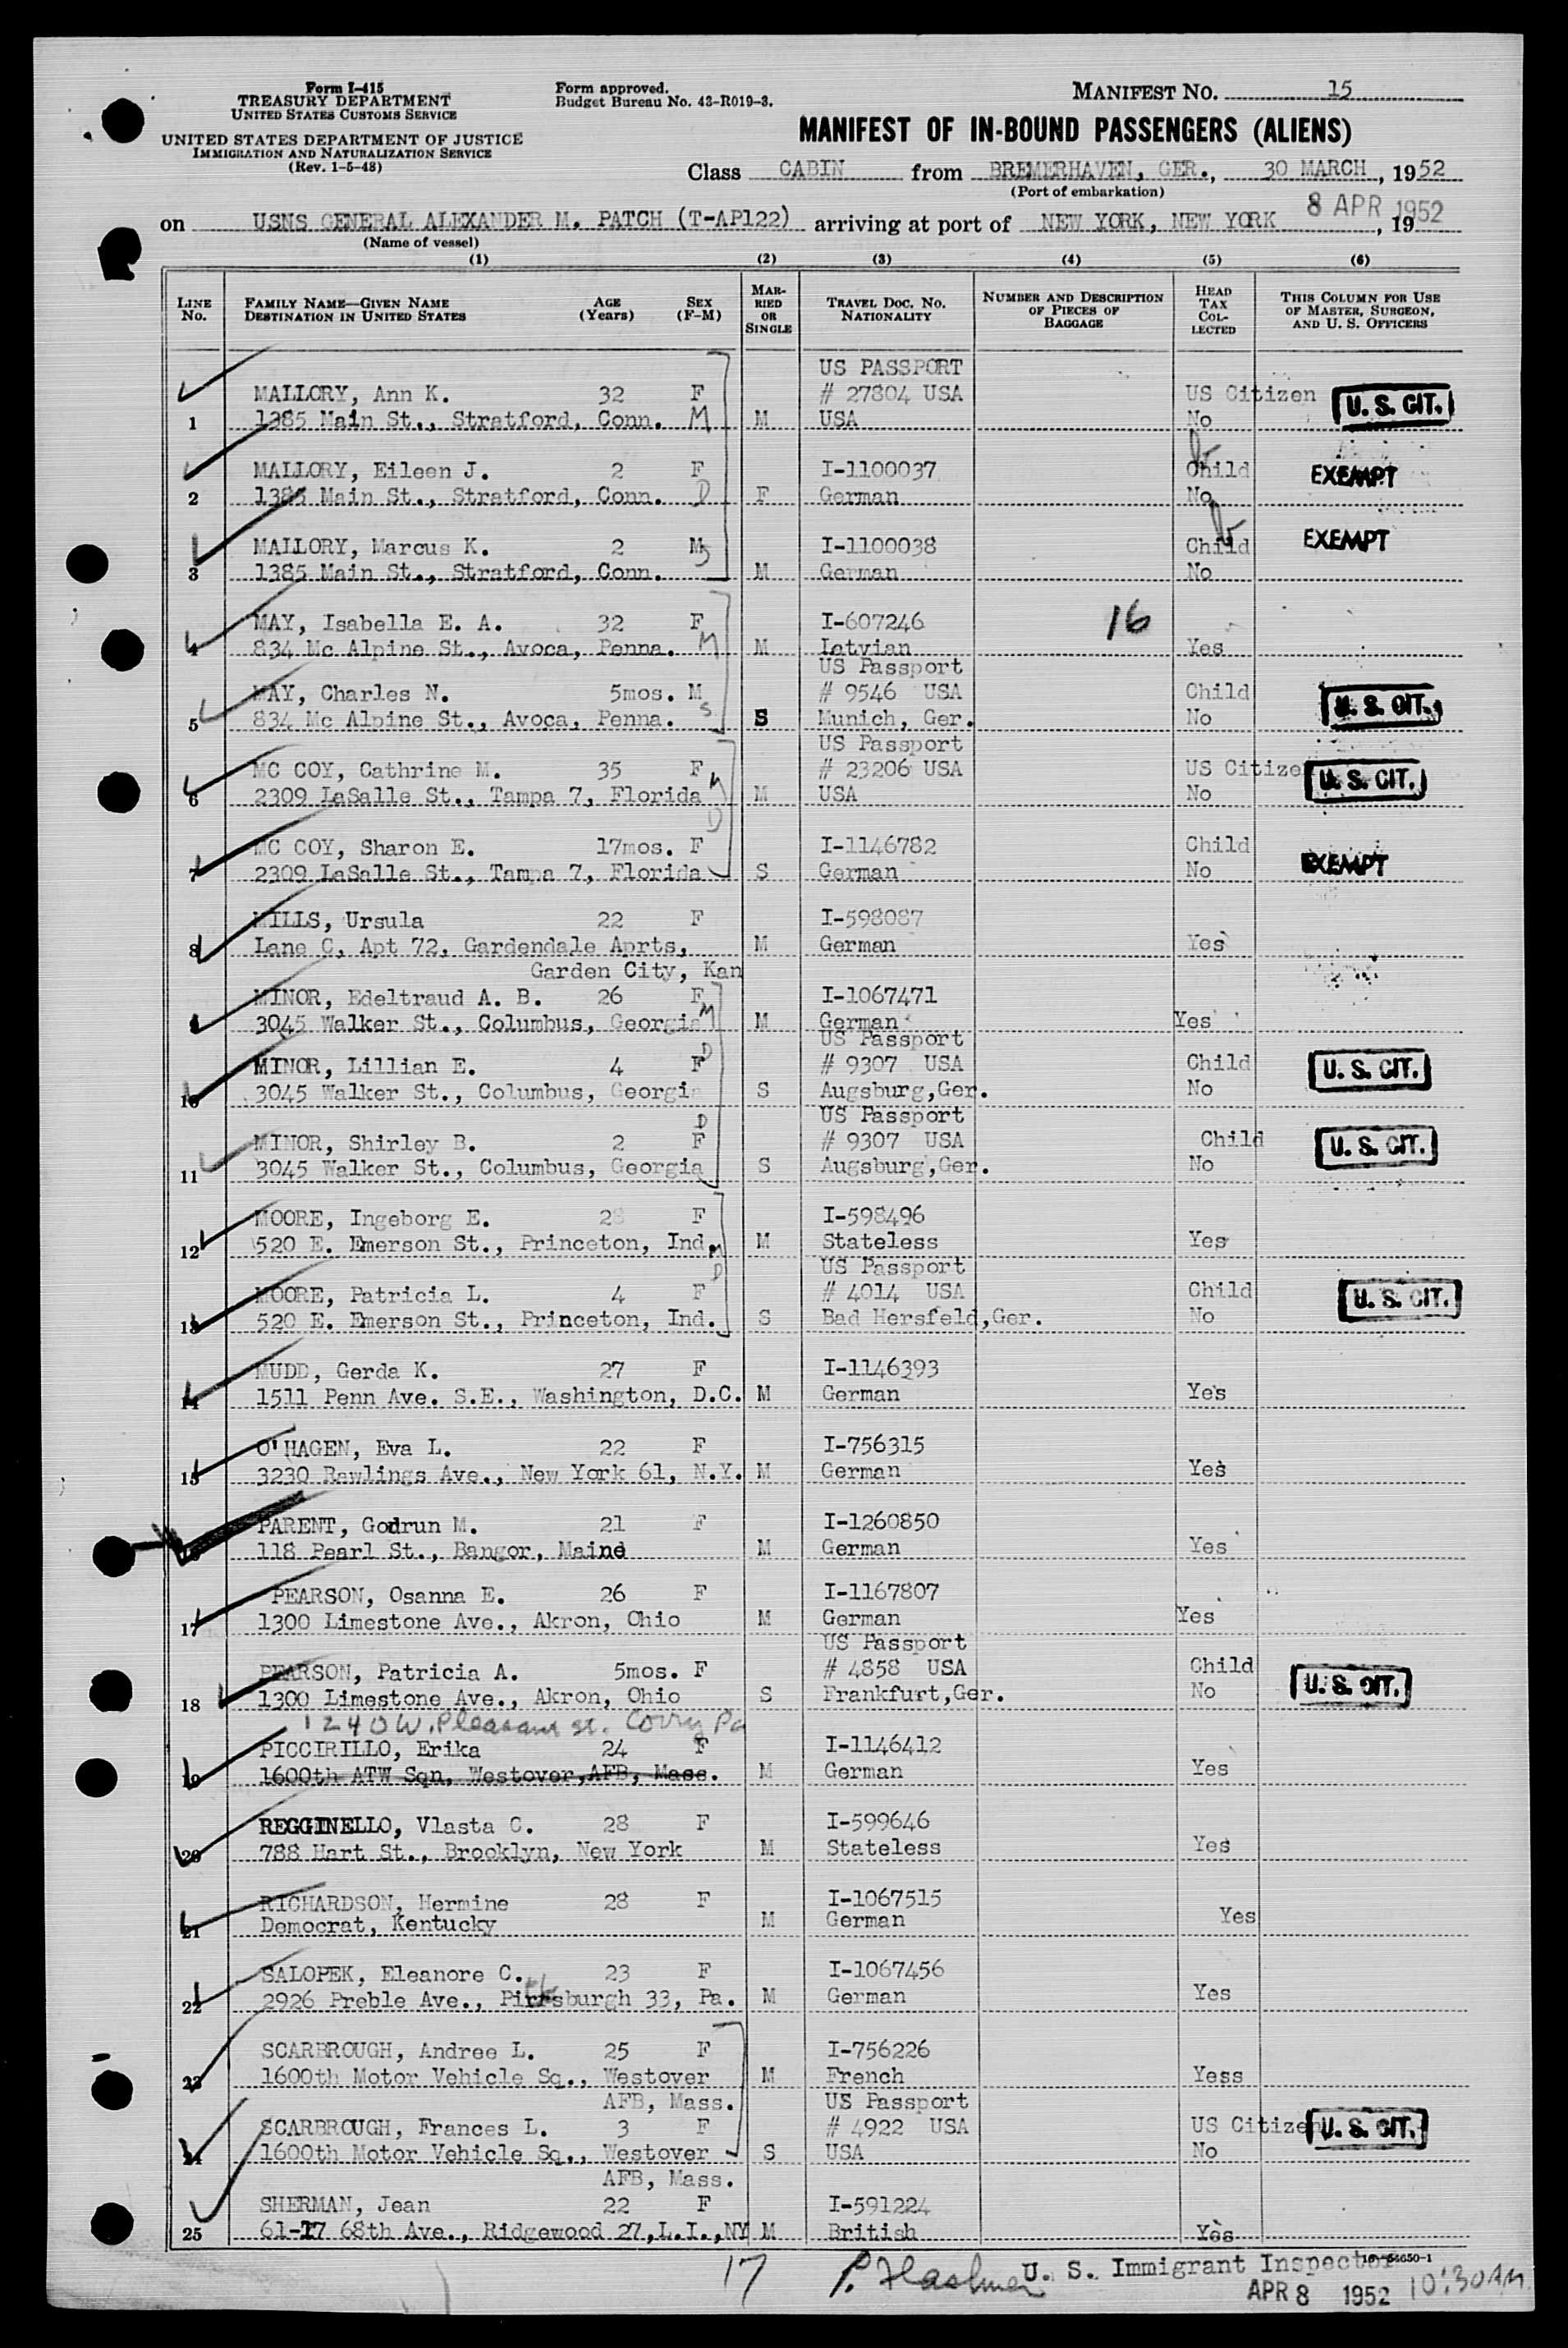 Form I-415
TREASURY DEPARTMENT
UNITED STATES CUSTOMS SERVICE
UNITED STATES DEPARTMENT OF JUSTICE
IMMIGRATION AND NATURALIZATION SERVICE
(Rev. 1-5-48)
Form approved.
Budget Bureau No. 43-R019-3.
MANIFEST NO. 15
MANIFEST OF IN-BOUND PASSENGERS (ALIENS)
Class CABIN from BREMERHAVEN, GER., 30 MARCH, 1952
(Port of embarkation)
on USNS GENERAL ALEXANDER M. PATCH (T-AP122) arriving at port of NEW YORK, NEW YORK 8 APR 1952, 19
(Name of vessel)
(1) (2) (3) (4) (5) (6)
LINE No. FAMILY NAME—GIVEN NAME DESTINATION IN UNITED STATES AGE (Years) SEX (F-M) MARRIED OR SINGLE TRAVEL DOC. NO. NATIONALITY NUMBER AND DESCRIPTION OF PIECES OF BAGGAGE HEAD TAX COLLECTED THIS COLUMN FOR USE OF MASTER, SURGEON, AND U. S. OFFICERS
US PASSPORT
MALLORY, Ann K. 32 F # 27804 USA US Citizen U. S. CIT.
1 1385 Main St., Stratford, Conn. M M USA No
MALLORY, Eileen J. 2 F I-1100037 Child EXEMPT
2 1385 Main St., Stratford, Conn. D F German No
MALLORY, Marcus K. 2 M S I-1100038 Child EXEMPT
3 1385 Main St., Stratford, Conn. M German No
MAY, Isabella E. A. 32 F I-607246 16
4 834 Mc Alpine St., Avoca, Penna. M M Latvian Yes
US Passport
MAY, Charles N. 5mos. M # 9546 USA Child U. S. CIT.
5 834 Mc Alpine St., Avoca, Penna. S S Munich, Ger. No
US Passport
MC COY, Cathrine M. 35 F # 23206 USA US Citizen U. S. CIT.
6 2309 LaSalle St., Tampa 7, Florida M M USA No
D
MC COY, Sharon E. 17mos. F I-1146782 Child EXEMPT
7 2309 LaSalle St., Tampa 7, Florida S German No
MILLS, Ursula 22 F I-598087
8 Lane C, Apt 72, Gardendale Aprts, M German Yes
Garden City, Kan
MINOR, Edeltraud A. B. 26 F I-1067471
9 3045 Walker St., Columbus, Georgia M M German Yes
US Passport
MINOR, Lillian E. 4 F D # 9307 USA Child U. S. CIT.
10 3045 Walker St., Columbus, Georgia S Augsburg,Ger. No
D US Passport
MINOR, Shirley B. 2 F # 9307 USA Child U. S. CIT.
11 3045 Walker St., Columbus, Georgia S Augsburg,Ger. No
MOORE, Ingeborg E. 28 F I-598496
12 520 E. Emerson St., Princeton, Ind. M M Stateless Yes
D US Passport
MOORE, Patricia L. 4 F # 4014 USA Child U. S. CIT.
13 520 E. Emerson St., Princeton, Ind. S Bad Hersfeld,Ger. No
MUDD, Gerda K. 27 F I-1146393
14 1511 Penn Ave. S.E., Washington, D.C. M German Yes
O'HAGEN, Eva L. 22 F I-756315
15 3230 Rawlings Ave., New York 61, N.Y. M German Yes
PARENT, Godrun M. 21 F I-1260850
16 118 Pearl St., Bangor, Maine M German Yes
PEARSON, Osanna E. 26 F I-1167807
17 1300 Limestone Ave., Akron, Ohio M German Yes
US Passport
PEARSON, Patricia A. 5mos. F # 4858 USA Child U. S. CIT.
18 1300 Limestone Ave., Akron, Ohio S Frankfurt,Ger. No
1240 W. Pleasant St. Corry Pa
PICCIRILLO, Erika 24 F I-1146412
19 1600th ATW Sqn, Westover,AFB, Mass. M German Yes
REGGINELLO, Vlasta C. 28 F I-599646
20 788 Hart St., Brooklyn, New York M Stateless Yes
RICHARDSON, Hermine 28 F I-1067515
21 Democrat, Kentucky M German Yes
SALOPEK, Eleanore C. 23 F I-1067456
22 2926 Preble Ave., Pittsburgh 33, Pa. M German Yes
SCARBROUGH, Andree L. 25 F I-756226
23 1600th Motor Vehicle Sq., Westover M French Yess
AFB, Mass. US Passport
SCARBROUGH, Frances L. 3 F # 4922 USA US Citizen U. S. CIT.
24 1600th Motor Vehicle Sq., Westover S USA No
AFB, Mass.
SHERMAN, Jean 22 F I-591224
25 61-17 68th Ave., Ridgewood 27,L.I.,NY M British Yes
17 P. U. S. Immigrant Inspector 16-54650-1
APR 8 1952 10:30 AM